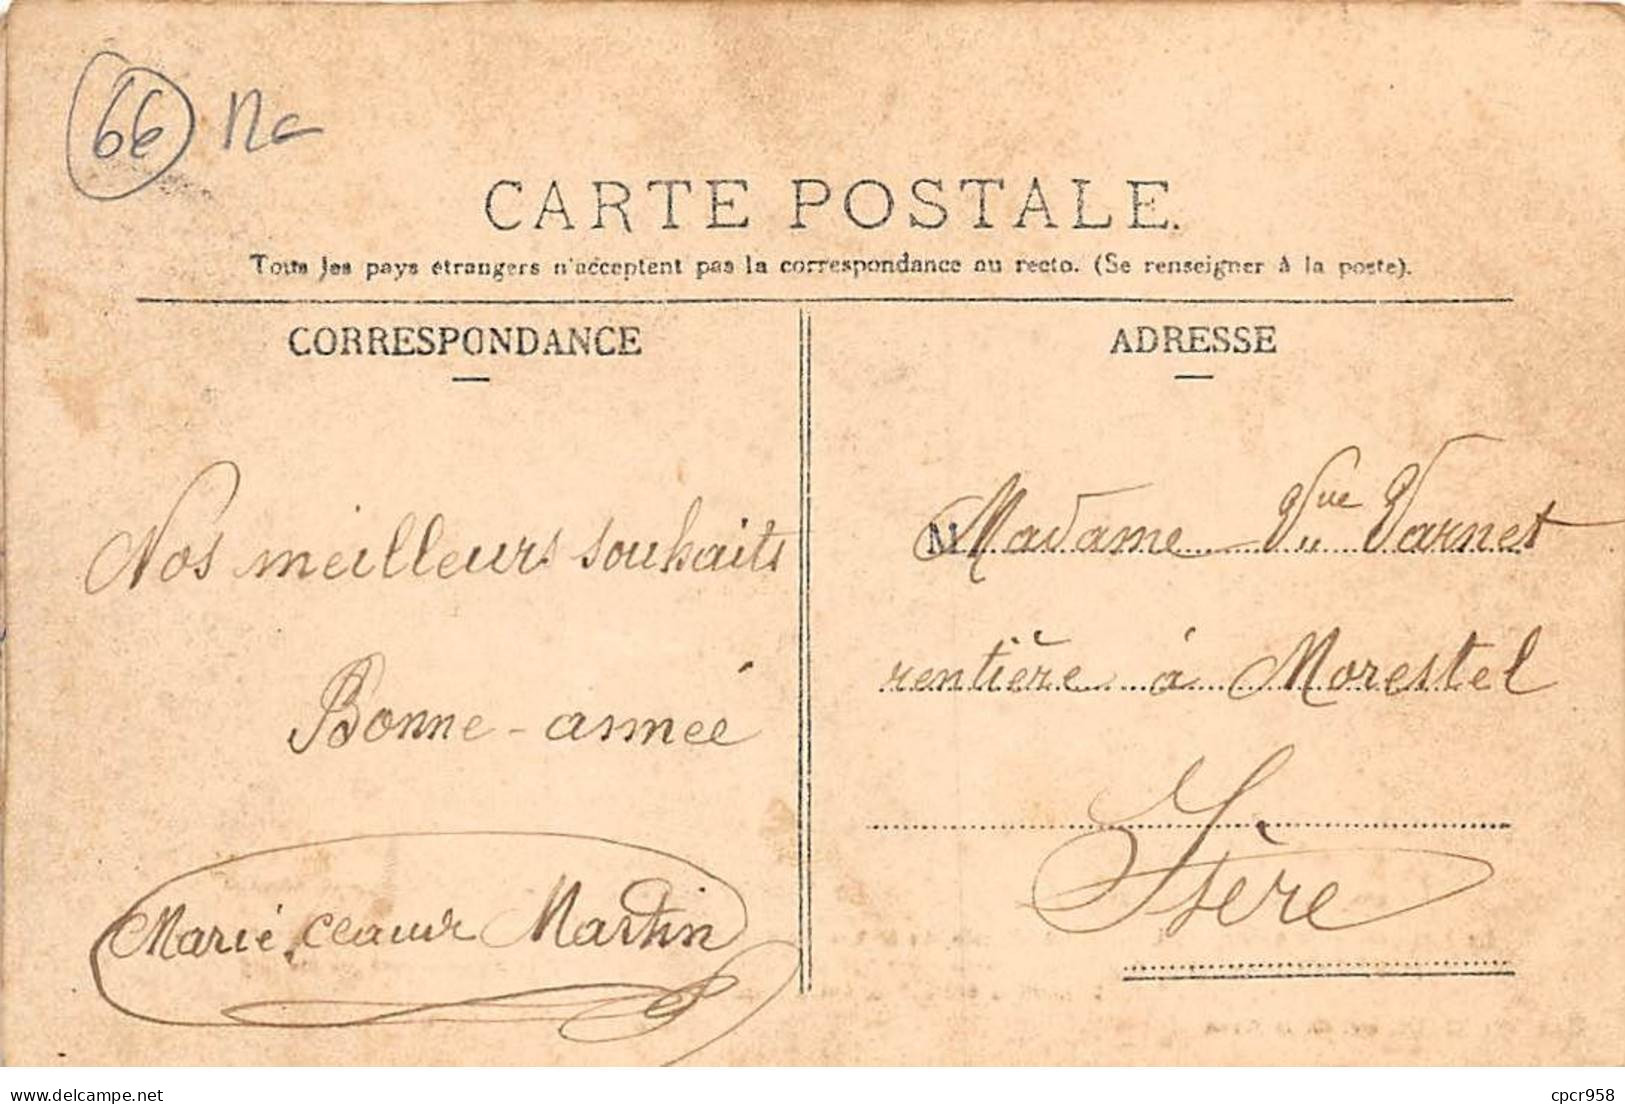 66
CARTE POSTALE.
Tous les pays étrangers n'acceptent pas la correspondance au recto. (Se renseigner à la poste).
CORRESPONDANCE
ADRESSE
Nos meilleurs souhaits
Bonne-année
Marie Martin
M
Madame Vve Varnet
rentière à Morestel
Isère
cpcr958